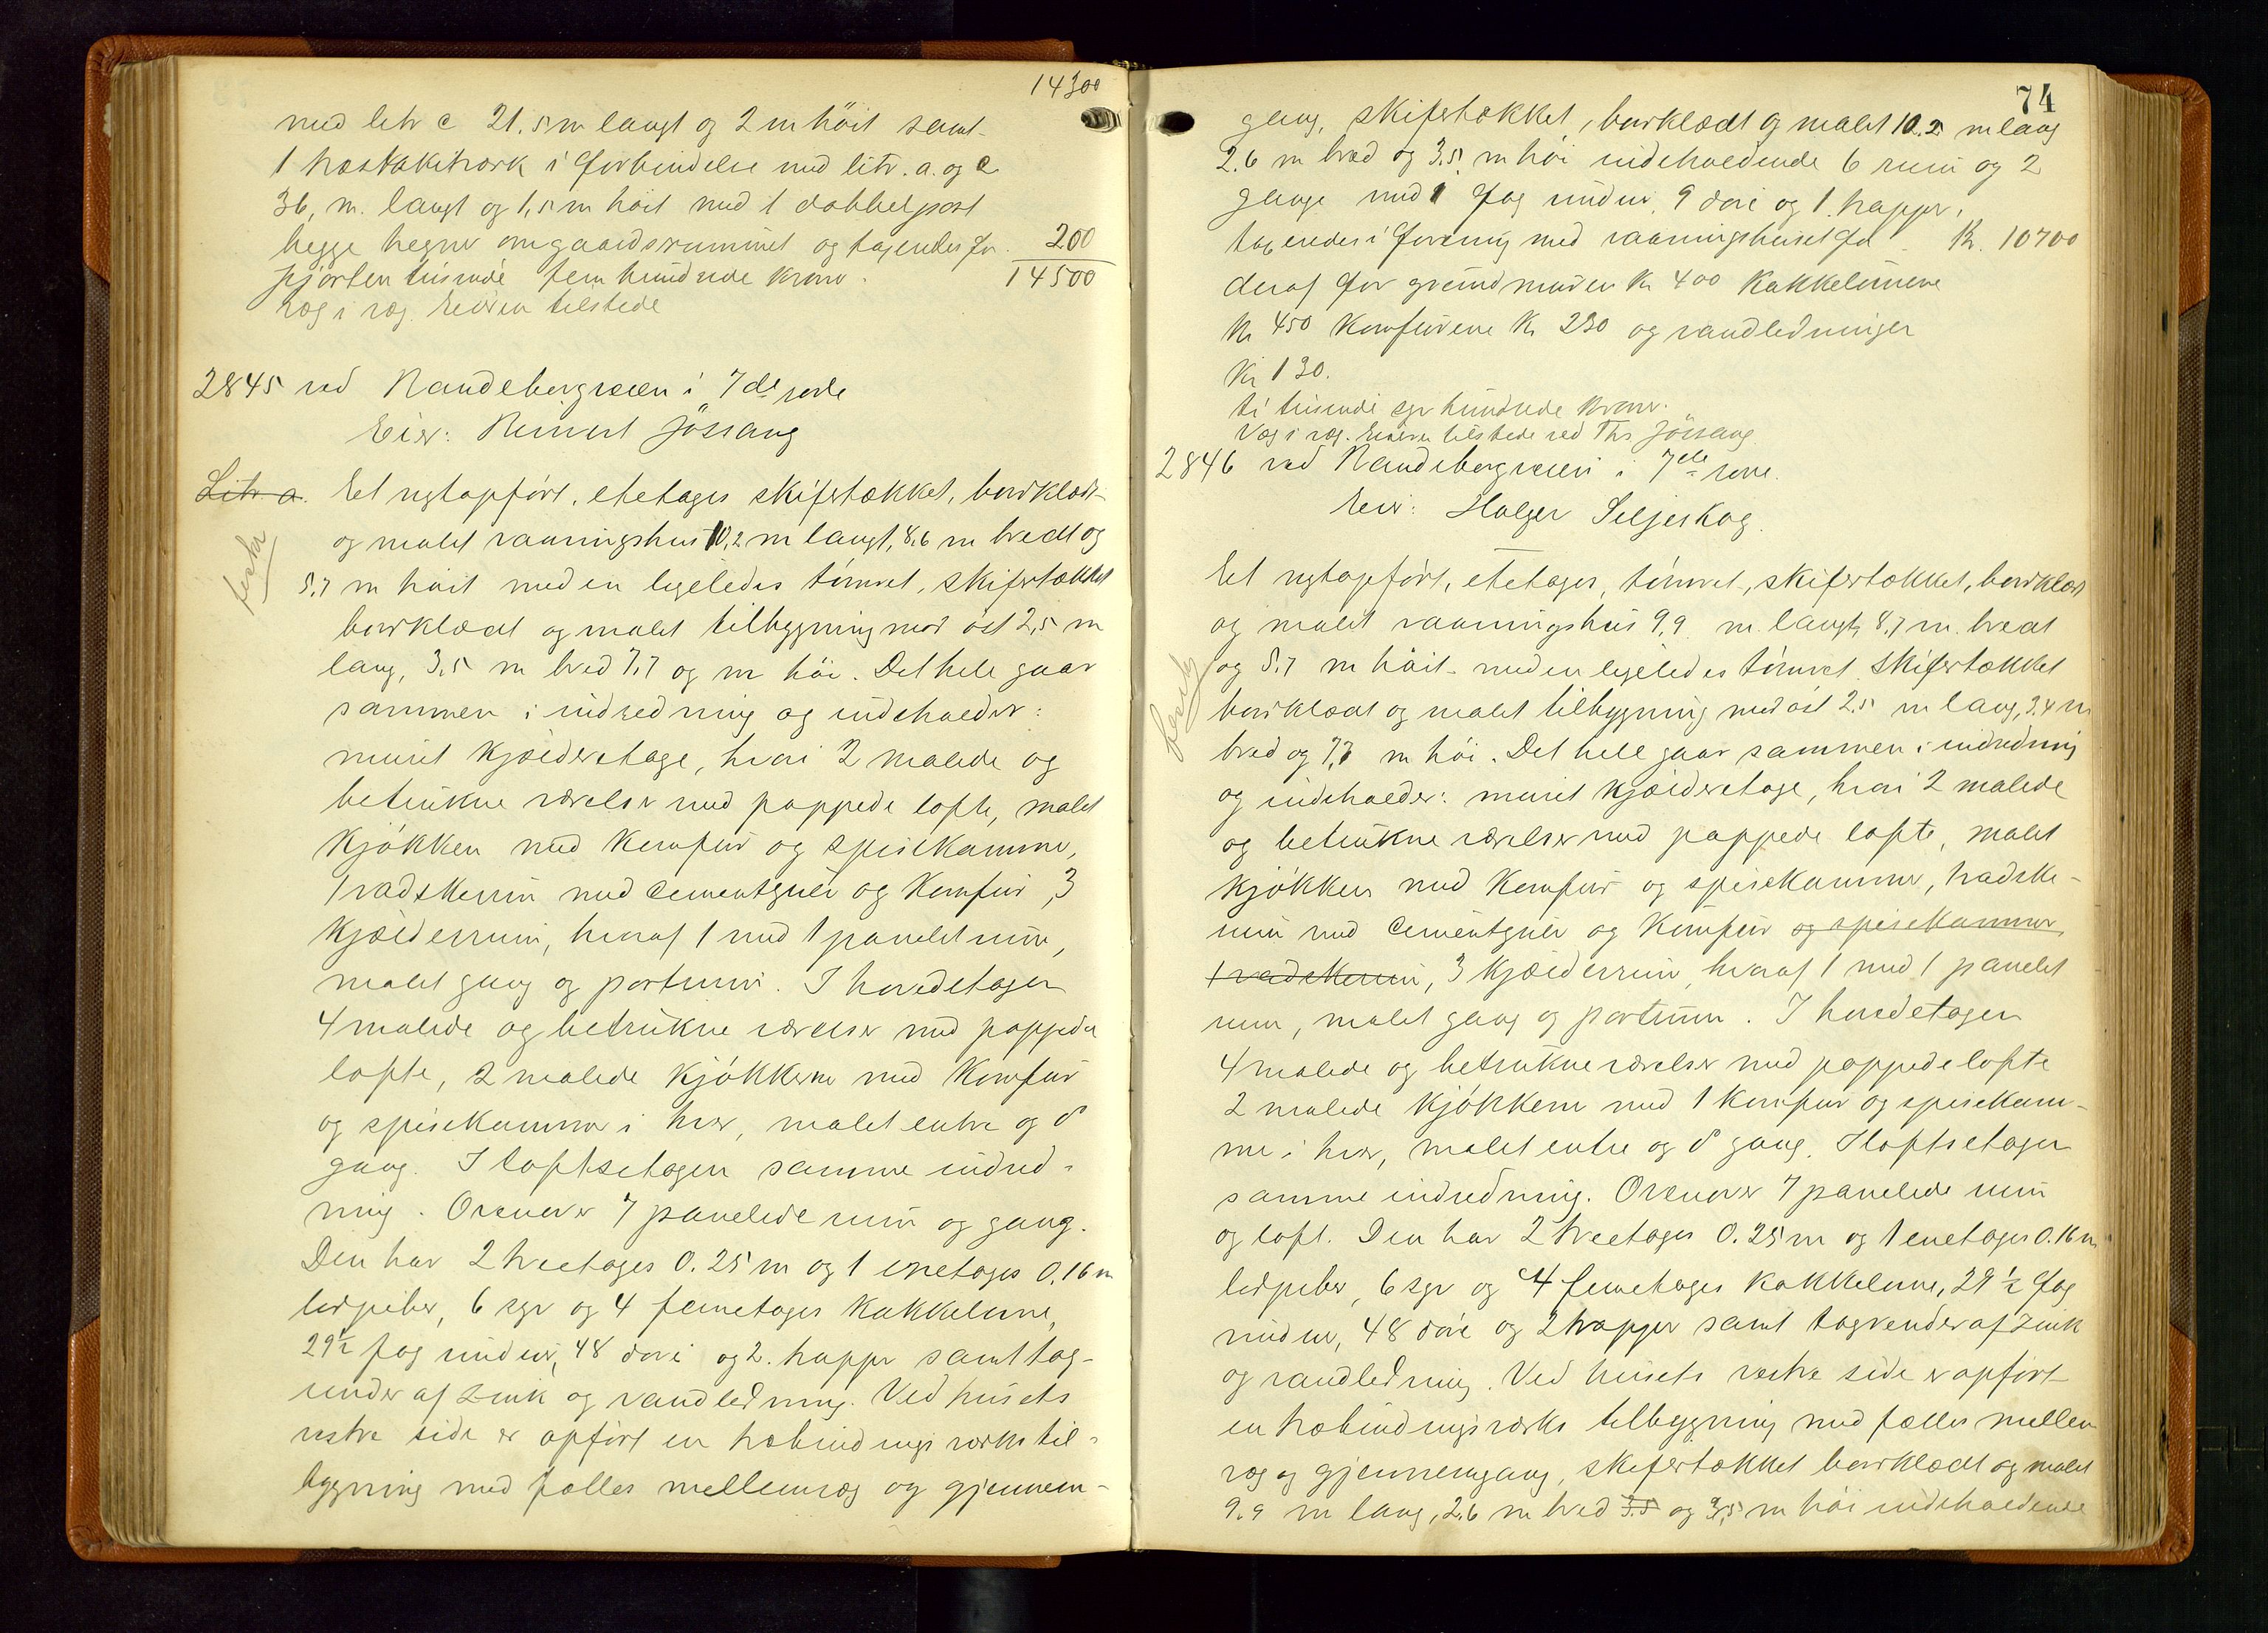 14300
med litr c 21.5 m langt og 2 m höit samt
1 træstakitværk i forbindelse med litr. a. og c
36, m. langt og 1,5 m höit med 1 dobbelport
begge hegner om gaardsrummet og tageredes for. 200
fjorten tusinde fem hundrede kroner. 14500
Væg i væg. Eieren tilstede
2845 ved Randebergveien i 7de rode
Eier: Reinert Jössang
Litr a. Et nyt opført, etetages skifertækket, bordklædt
og malet vaaningshus 10,2 m langt, 8,6 m bredt og
5,7 m höit med en ligeledes tömret, skifertækket
bordklædt og malet tilbygning mod öst 2,5 m
lang, 3,5 m bred 7,7 og m höi. Det hele gaar
sammen i indredning og indeholder:
muret kjælderetage, hvori 2 malede og
betrukne værelser med pappede lofte, malet
kjökken med komfur og spisekammer,
1 vadskerum med cementgulv og komfur, 3
kjælderrum, hvoraf 1 med 1 panelet rum,
malet gang og portrum. I hovedetagen
4 malede og betrukne værelser med pappede
lofte, 2 malede kjökkener med komfur
og spisekammer i hver, malet entre og d
gang. I loftsetagen samme indred-
ning. Ovenover 7 panelede rum og gang.
Den har 2 treetages 0.25 m og 1 enetages 0,16 m
lerpiber, 6 syv og 4 femetages kakkelovne,
29½ fag vinduer, 48 döre og 2 trapper samt tag-
render af zink og vandledning. Ved husets
vestre side er opført en træbindingsværks til-
bygning med fælles mellemvæg og gjennem-
74
gang, skifertækket, bordklædt og malet 10.2 m lang
2.6 m bred og 3.5 m höi indeholdende 6 rum og 2
gange med 1 fag vinduer, 9 döre og 1 trappe,
tageredes i forening med vaaningshuset for Kr. 10700
deraf for grundmuren Kr 400 kakkelovnene
Kr 450 komfurene Kr 230 og vandledninger
Kr 130.
ti tusinde syv hundrede kroner.
Væg i væg. Eieren tilstede ved Ths Jössang.
2846 ved Randebergveien i 7de rode.
Eier: Holger Seljeskog.
Et nyt opført, etetages, tömret, skifertækket, bordklædt
og malet vaaningshus 9,9 m. langt, 8,7 m. bredt
og 5.7 m höit med en ligeledes tömret skifertækket
bordklædt og malet tilbygning mod öst 2.5 m lang, 3,4 m
bred og 7,7 m höi. Det hele gaar sammen i indredning
og indeholder: muret kjælderetage, hvori 2 malede
og betrukne værelser med pappede lofte, malet
kjökken med komfur og spisekammer, vadske-
rum med cementgulv og komfur og spisekammer
1 vadskerum, 3 kjælderrum, hvoraf 1 med 1 panelet
rum, malet gang og portrum. I hovedetagen
4 malede og betrukne værelser med pappede lofte
2 malede kjökkener med 1 komfur og spisekam-
mer i hver, malet entre og d gang. I loftsetagen
samme indredning. Ovenover 7 panelede rum
og loft. Den har 2 treetages 0.25 m og 1 enetages 0.16 m
lerpiber, 6 syv og 4 femetages kakkelovne, 29½ fag
vinduer, 48 döre og 2 trapper samt tagrender af zink
og vandledning. Ved husets vestre side er opført
en træbindingsværks tilbygning med fælles mellem
væg og gjennemgang, skifertækket bordklædt og malet
9.9 m lang, 2.6 m bred 3.5 og 3,5 m höi indeholdende